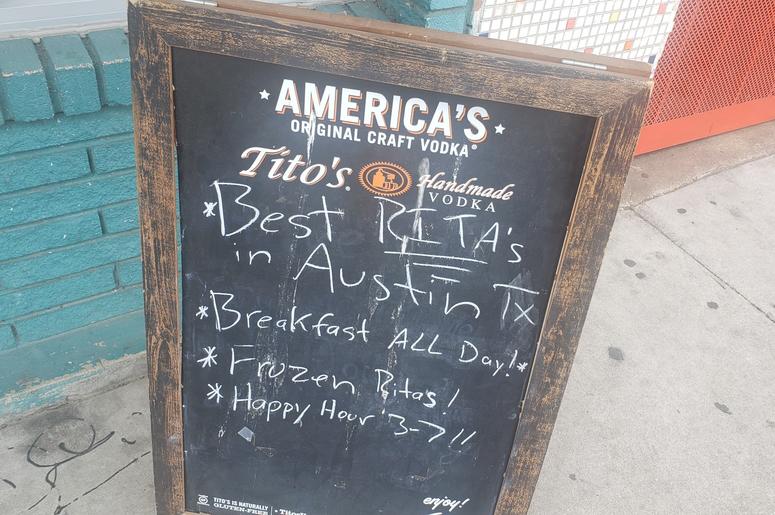 ★ AMERICA'S ★
ORIGINAL CRAFT VODKA®
Tito's® Handmade
VODKA
*Best RITA's
in Austin Tx
*Breakfast ALL Day!*
* Frozen Rita's!
* Happy Hour 3-7!!
enjoy!
TITO'S IS NATURALLY
GLUTEN-FREE